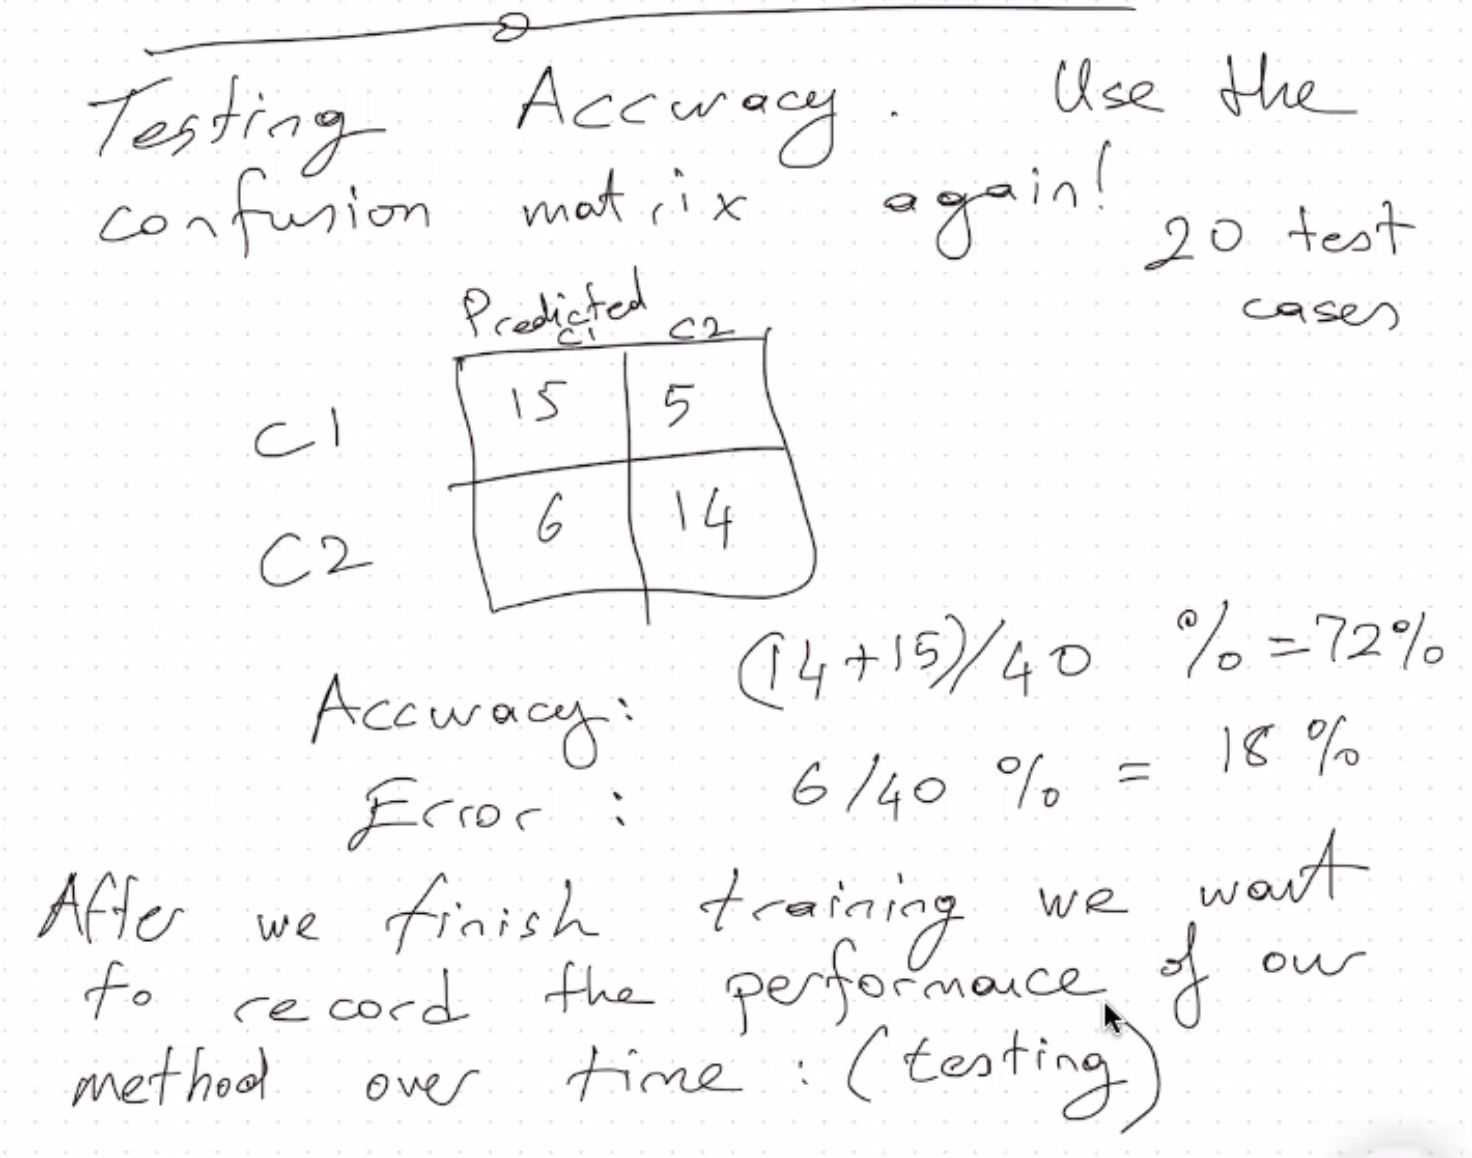 Testing Accuracy. Use the
confusion matrix again!
20 test
cases
Predicted
C1 C2
C1 15 5
C2 6 14
Accuracy: (14+15)/40 % = 72%
Error: 6/40 % = 18 %
After we finish training we want
to record the performance of our
method over time: (testing)